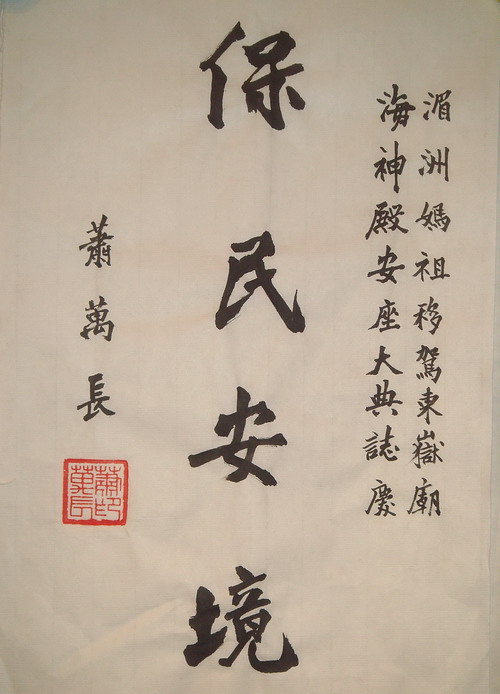 湄洲媽祖移駕東嶽廟
海神殿安座大典誌慶
保民安境
蕭萬長
蕭萬長印